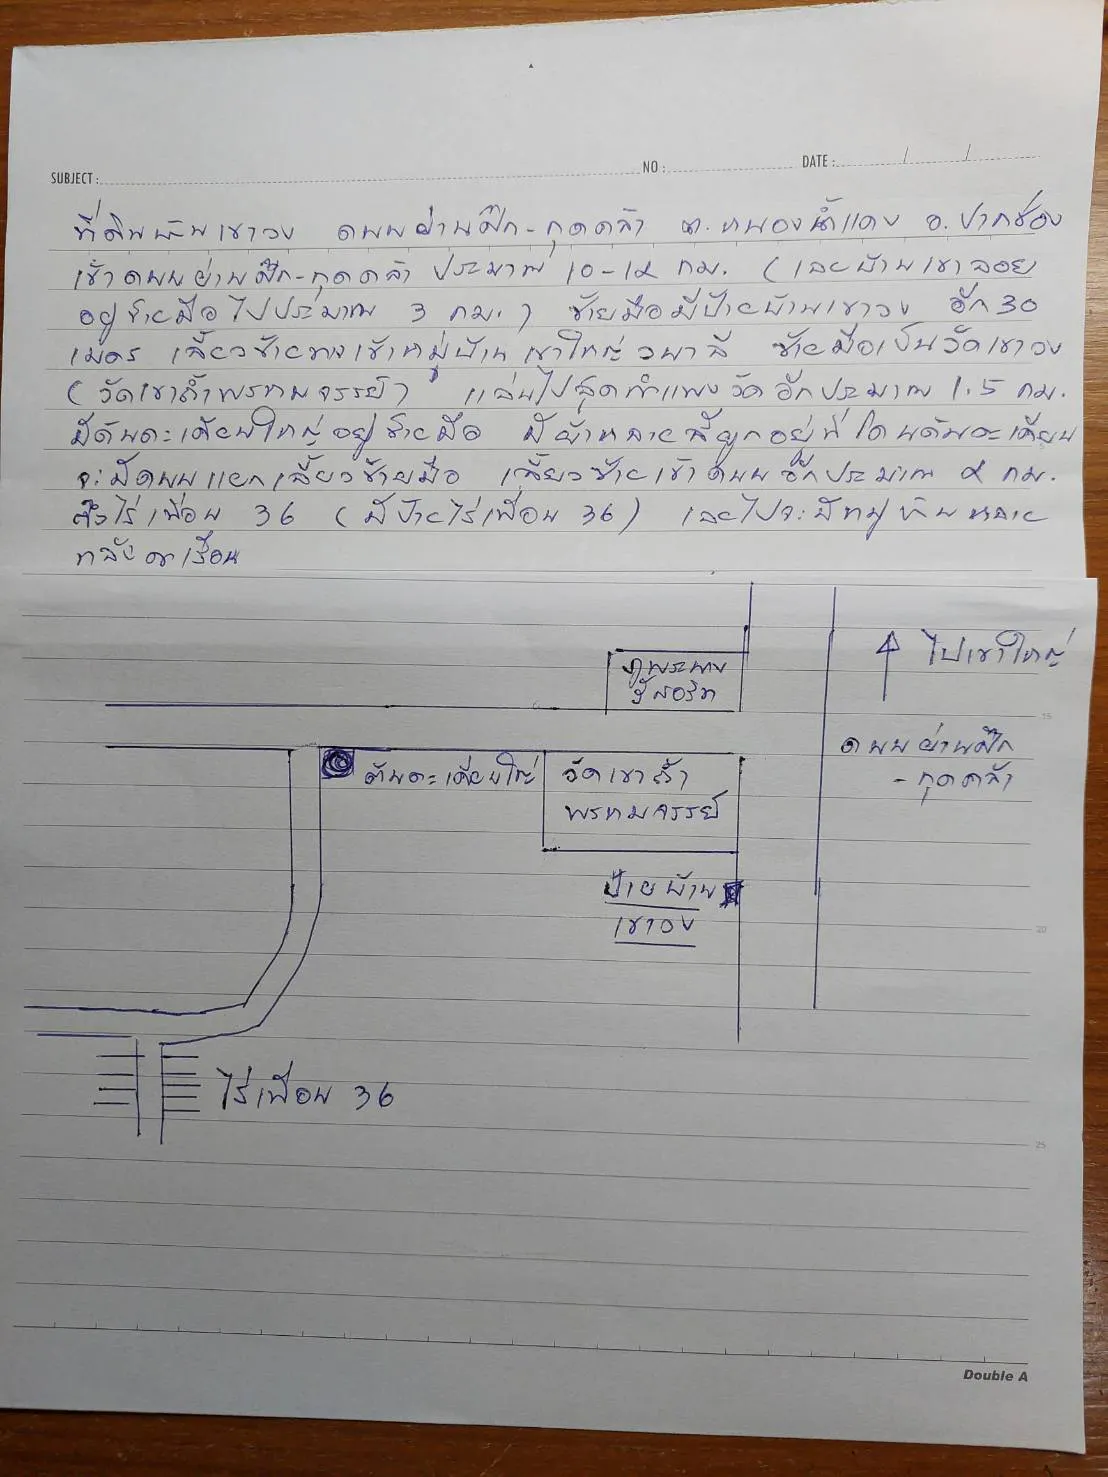 SUBJECT :
NO :
DATE : / /
ที่ดินบ้านเขาวง ถนนผ่านศึก-กุดคล้า ต.หนองน้ำแดง อ.ปากช่อง
เข้าถนนผ่านศึก-กุดคล้า ประมาณ 10-12 กม. (เลยบ้านเขาลอย
อยู่ซ้ายมือไปประมาณ 3 กม.) ซ้ายมือมีป้ายบ้านเขาวง อีก 30
เมตร เลี้ยวซ้ายทางเข้าหมู่บ้าน เขาใหญ่วนาลี ซ้ายมือเป็นวัดเขาวง
(วัดเขาถ้ำพรหมจรรย์) แล่นไปสุดกำแพงวัดอีกประมาณ 1.5 กม.
มีต้นตะเคียนใหญ่อยู่ซ้ายมือ มีผ้าหลายสีผูกอยู่ที่โคนต้นตะเคียน
จะมีถนนแยกเลี้ยวซ้ายมือ เลี้ยวซ้ายเข้าถนนอีกประมาณ 2 กม.
ถึงไร่เพื่อน 36 (มีป้ายไร่เพื่อน 36) เลยไปจะมีหมู่บ้านหลาย
หลังคาเรือน
ไปเขาใหญ่
15
ถนนผ่านศึก
-กุดคล้า
ต้นตะเคียนใหญ่
วัดเขาถ้ำ
พรหมจรรย์
ป้ายบ้าน
เขาวง
20
ไร่เพื่อน 36
25
Double A